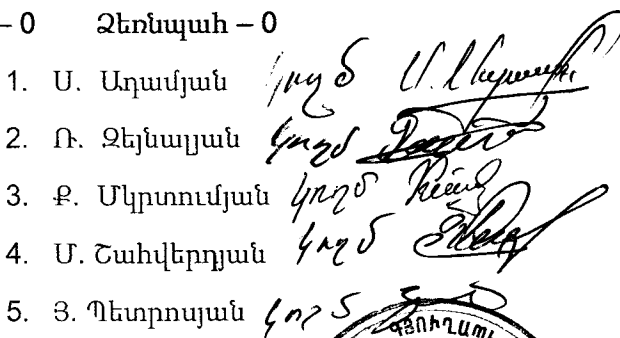 – 0 Ձեռնպահ – 0
1. Ս. Աղամյան կողմ
2. Ռ. Զեյնալյան կողմ
3. Ք. Մկրտումյան կողմ
4. Մ. Շահվերդյան կողմ
5. Յ. Պետրոսյան կողմ